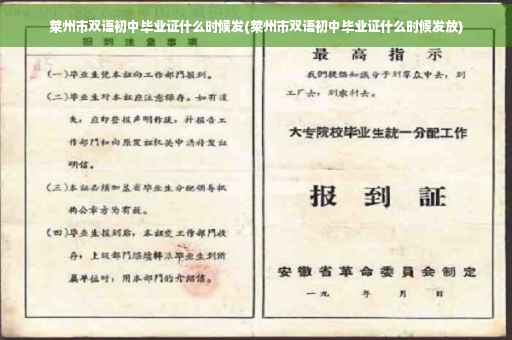 莱州市双语初中毕业证什么时候发(莱州市双语初中毕业证什么时候发放)
报到注意事项
(一)毕业生凭本证向工作部门报到。
(二)毕业生对本证应注意保存。如有遗
失，应即登报声明作废，并报告工
作部门和向原发证机关申请补发证
明信。
(三)本证必须加盖省毕业生分配领导机
构公章方为有效。
(四)毕业生报到后，本证交工作部门收
存；上级部门继续转派毕业生到所
属单位时，用本部门的介绍信。
最高指示
我们提倡知识分子到群众中去，到
工厂去，到农村去。
大专院校毕业生統一分配工作
报到証
安徽省革命委員会制定
一九 年 月 日